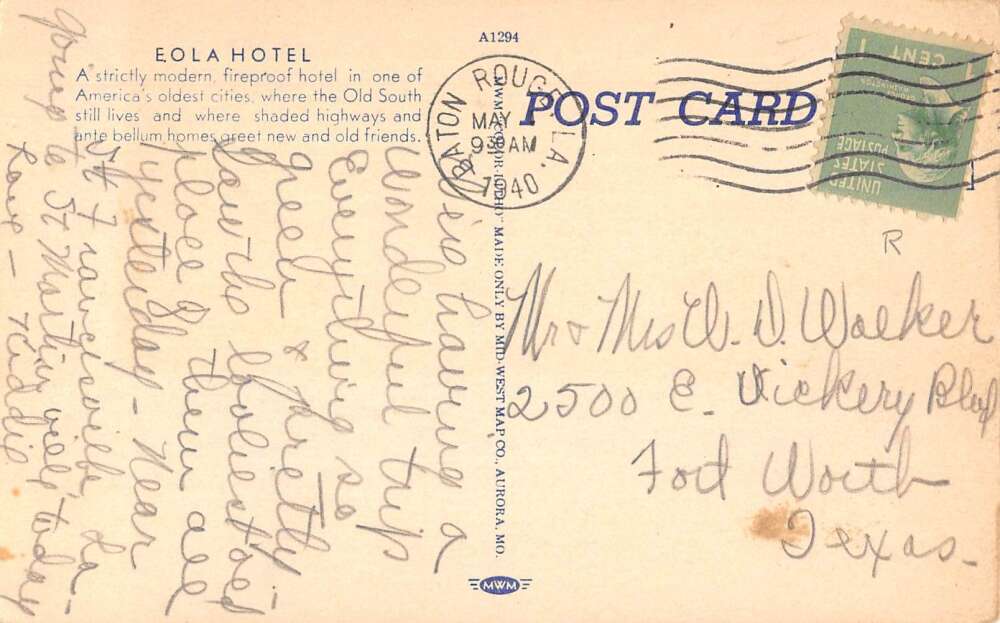 EOLA HOTEL
A strictly modern, fireproof hotel in one of
America's oldest cities, where the Old South
still lives and where shaded highways and
ante bellum homes greet new and old friends.
A1294
POST CARD
BATON ROUGE, LA.
MAY
9 30 AM
1940
1 CENT 1
UNITED
STATES
POSTAGE
"MWM COLOR-LITHO" MADE ONLY BY MID-WEST MAP CO., AURORA, MO.
MWM
R
Mr & Mrs W. D. Walker
2500 E. Vickery Blvd
Fort Worth
Texas.
is having a
Wonderful trip
Everything so
green & pretty
Saw the
place of them all
yesterday - Near
St Francisville, La -
going to St Martinville today
Love -